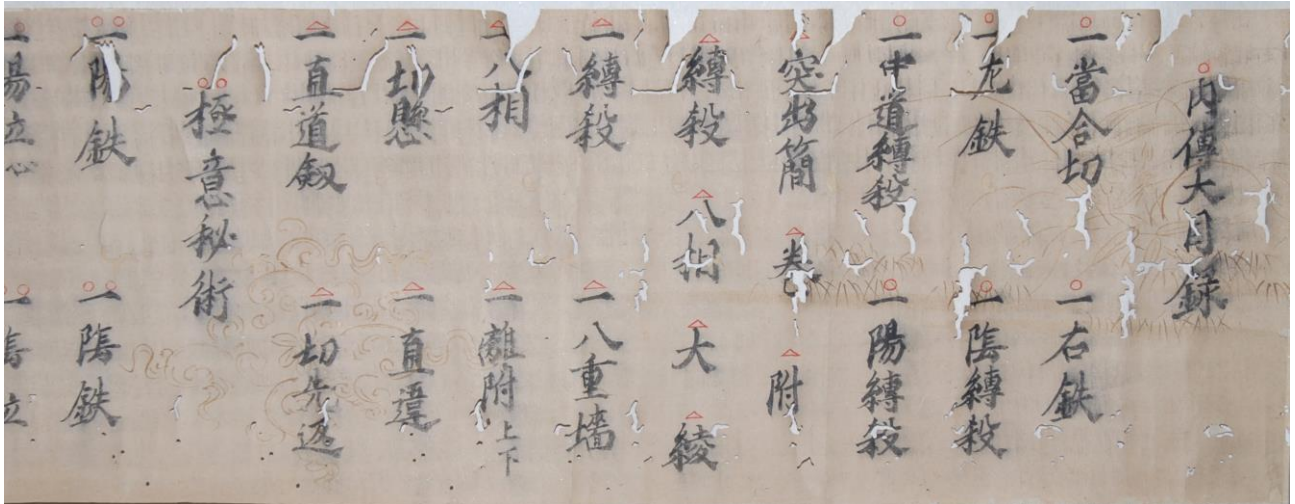 内傳大目録
一當合切 一右鉄
一左鉄 一陰縛殺
一中道縛殺 一陽縛殺
突出簡 巻 附
縛殺 八相 大綾
一縛殺 一八重墻
一八相 一離附上下
一切懸 一直違
一直道剱 一切先返
極意秘術
一陽鉄 一陰鉄